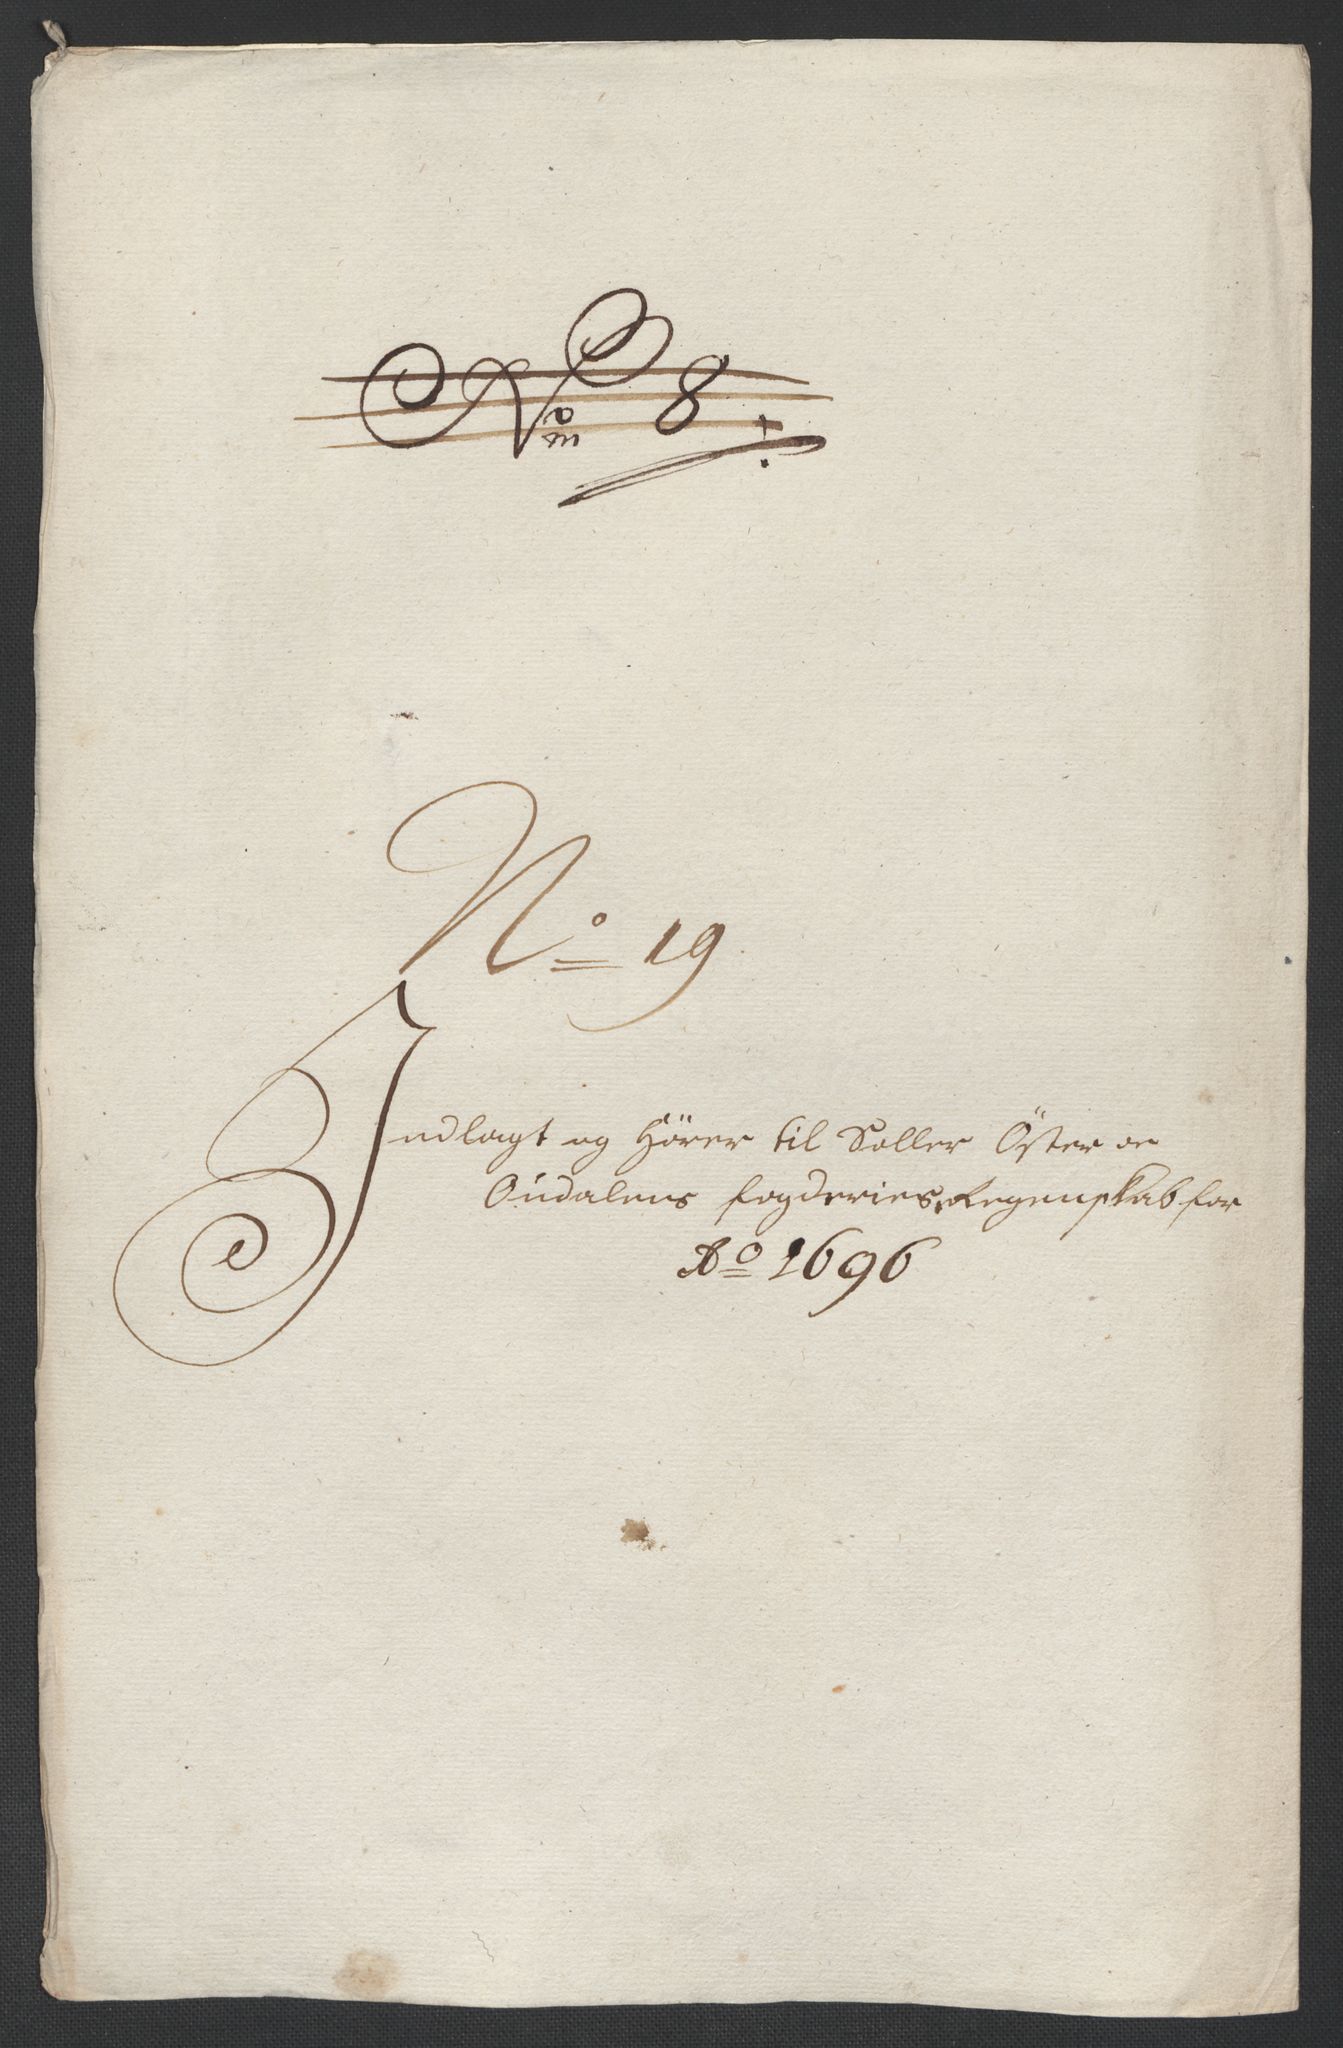 No 8
No 19
Indlagt og Hörer til Soller Öster oc
Oudalens fogderies Regenskab for
Ao 1696